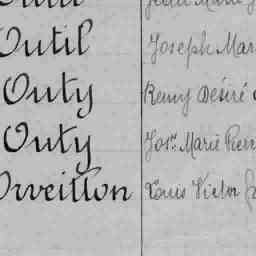 Outil Joseph Mar
Outy Remy Désiré
Outy Jos. Marie Pierr
Orveillon Louis Victor